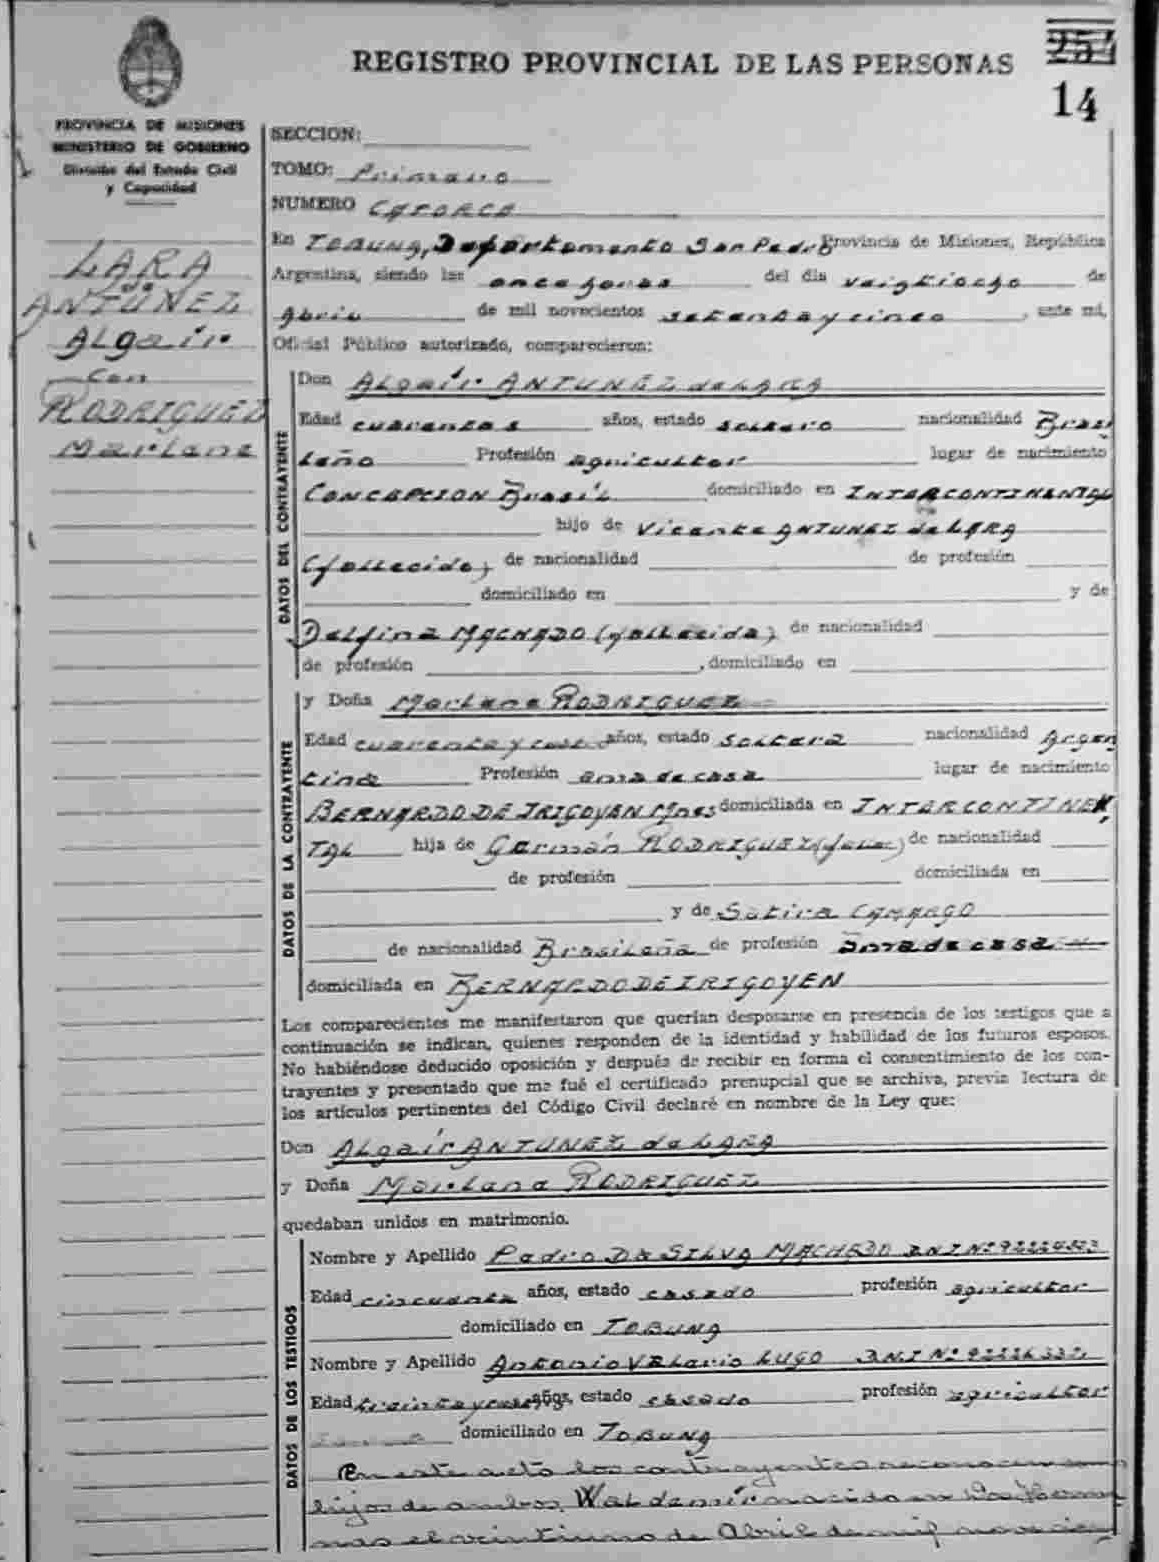 REGISTRO PROVINCIAL DE LAS PERSONAS
254
14
PROVINCIA DE MISIONES
MINISTERIO DE GOBIERNO
División del Estado Civil
y Capacidad
LARA
de
ANTÚNEZ
Algair
Con
RODRIGUEZ
Marlene
SECCION:
TOMO: Primero
NUMERO CATORCE
En TOBUNA, Departamento San Pedro Provincia de Misiones, República
Argentina, siendo las once horas del día veintiocho de
Abril de mil novecientos setenta y cinco, ante mí,
Oficial Público autorizado, comparecieron:
DATOS DEL CONTRAYENTE
Don Algair ANTUNEZ de LARA
Edad cuarenta años, estado soltero nacionalidad Brasi
leño Profesión agricultor lugar de nacimiento
CONCEPCION Brasil domiciliado en INTERCONTINENTAL
hijo de Vicente ANTUNEZ de LARA
(fallecido) de nacionalidad de profesión
domiciliado en y de
Delfina MACHADO (fallecida) de nacionalidad
de profesión , domiciliado en
DATOS DE LA CONTRAYENTE
y Doña Marlene RODRIGUEZ
Edad cuarenta y años, estado soltera nacionalidad Argen
tina Profesión ama de casa lugar de nacimiento
BERNARDO DE IRIGOYEN Mnes domiciliada en INTERCONTINEN
TAL hija de Germán RODRIGUEZ de nacionalidad
de profesión domiciliada en
y de CAMARGO
de nacionalidad Brasileña de profesión ama de casa
domiciliada en BERNARDO DE IRIGOYEN
Los comparecientes me manifestaron que querían desposarse en presencia de los testigos que a
continuación se indican, quienes responden de la identidad y habilidad de los futuros esposos.
No habiéndose deducido oposición y después de recibir en forma el consentimiento de los con-
trayentes y presentado que me fué el certificado prenupcial que se archiva, previa lectura de
los artículos pertinentes del Código Civil declaré en nombre de la Ley que:
Don Algair ANTUNEZ de LARA
y Doña Marlene RODRIGUEZ
quedaban unidos en matrimonio.
DATOS DE LOS TESTIGOS
Nombre y Apellido Pedro DA SILVA MACHADO DNI Nº
Edad cincuenta años, estado casado profesión agricultor
domiciliado en TOBUNA
Nombre y Apellido Antonio LUGO DNI Nº
Edad treinta y años, estado casado profesión agricultor
domiciliado en TOBUNA
En este acto los contrayentes reconocen como
hijos de ambos, Waldemir nacido en Dos Herma
nas el veintiuno de Abril de mil novecien